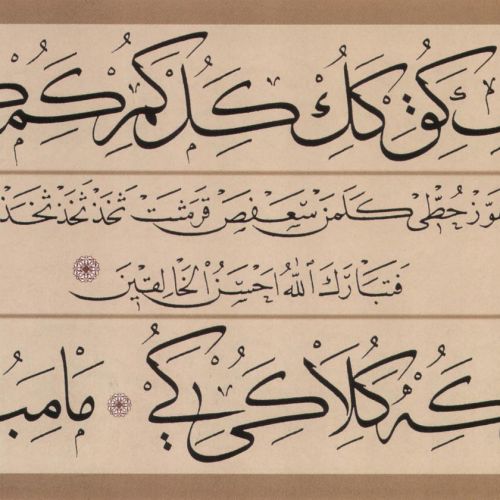 كق كك كل كم كم
حُطّي كَلَمَنْ سَعْفَصْ قَرَشَتْ ثَخَذْ ثَخَذْ
فَتَبَارَكَ اللّٰهُ اَحْسَنُ الْخَالِقِينَ
كه كلا كى كي مَا مِبْ